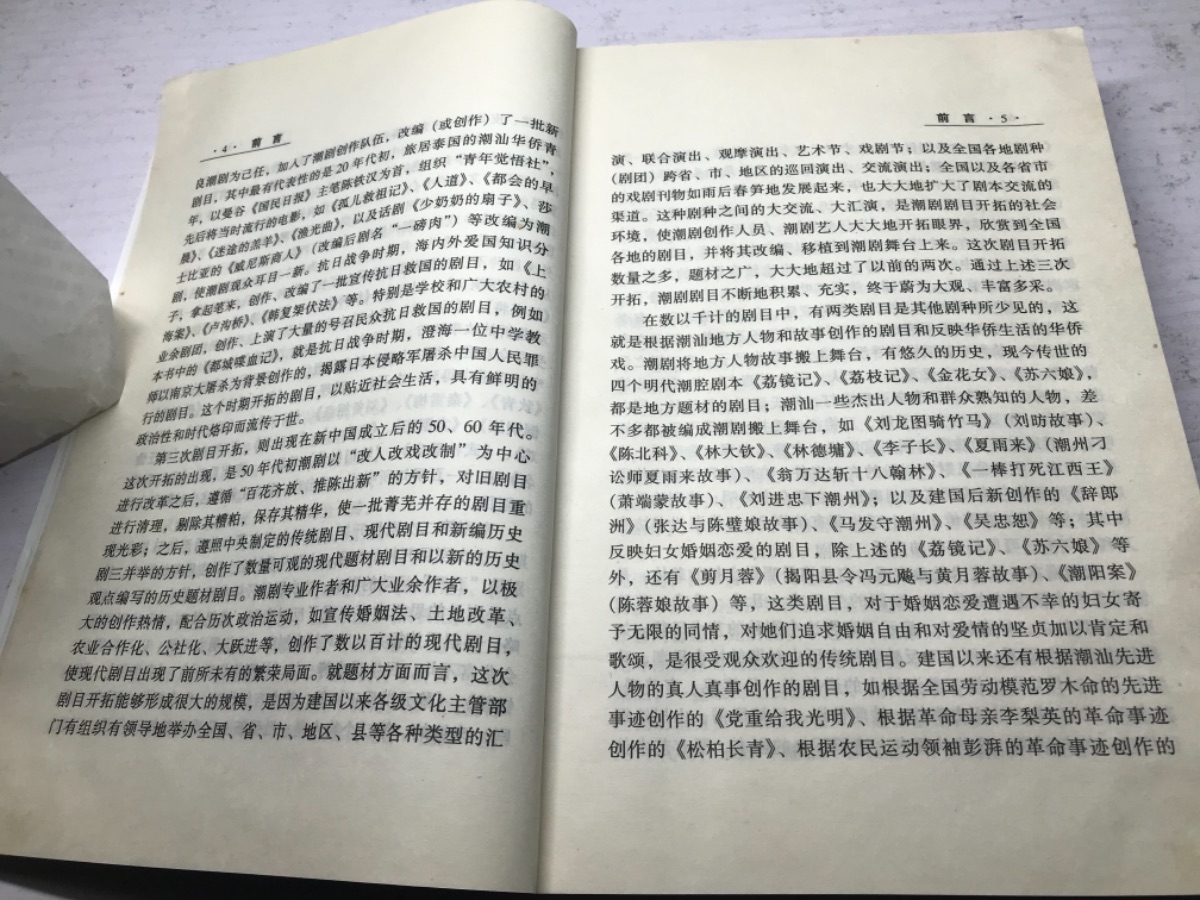 ·4· 前言
良潮剧为己任，加入了潮剧创作队伍，改编（或创作）了一批新
剧目，其中最有代表性的是20年代初，旅居泰国的潮汕华侨青
年，以曼谷《国民日报》主笔陈铁汉为首，组织“青年觉悟社”，
先后将当时流行的电影，如《孤儿救祖记》、《人道》、《都会的早
晨》、《迷途的羔羊》、《渔光曲》，以及话剧《少奶奶的扇子》、莎
士比亚的《威尼斯商人》（改编后剧名“一磅肉”）等改编为潮
剧，使潮剧观众耳目一新。抗日战争时期，海内外爱国知识分
子，拿起笔来，创作、改编了一批宣传抗日救国的剧目，如《上
海案》、《卢沟桥》、《韩复榘伏法》等。特别是学校和广大农村的
业余剧团，创作、上演了大量的号召民众抗日救国的剧目，例如
本书中的《都城喋血记》，就是抗日战争时期，澄海一位中学教
师以南京大屠杀为背景创作的，揭露日本侵略军屠杀中国人民罪
行的剧目。这个时期开拓的剧目，以贴近社会生活，具有鲜明的
政治性和时代烙印而流传于世。
第三次剧目开拓，则出现在新中国成立后的50、60年代。
这次开拓的出现，是50年代初潮剧以“改人改戏改制”为中心
进行改革之后，遵循“百花齐放、推陈出新”的方针，对旧剧目
进行清理，剔除其糟粕，保存其精华，使一批菁芜并存的剧目重
现光彩；之后，遵照中央制定的传统剧目、现代剧目和新编历史
剧三并举的方针，创作了数量可观的现代题材剧目和以新的历史
观点编写的历史题材剧目。潮剧专业作者和广大业余作者，以极
大的创作热情，配合历次政治运动，如宣传婚姻法、土地改革、
农业合作化、公社化、大跃进等，创作了数以百计的现代剧目，
使现代剧目出现了前所未有的繁荣局面。就题材方面而言，这次
剧目开拓能够形成很大的规模，是因为建国以来各级文化主管部
门有组织有领导地举办全国、省、市、地区、县等各种类型的汇
前言 ·5·
演、联合演出、观摩演出、艺术节、戏剧节；以及全国各地剧种
（剧团）跨省、市、地区的巡回演出、交流演出；全国以及各省市
的戏剧刊物如雨后春笋地发展起来，也大大地扩大了剧本交流的
渠道。这种剧种之间的大交流、大汇演，是潮剧剧目开拓的社会
环境，使潮剧创作人员、潮剧艺人大大地开拓眼界，欣赏到全国
各地的剧目，并将其改编、移植到潮剧舞台上来。这次剧目开拓
数量之多，题材之广，大大地超过了以前的两次。通过上述三次
开拓，潮剧剧目不断地积累、充实，终于蔚为大观、丰富多采。
在数以千计的剧目中，有两类剧目是其他剧种所少见的，这
就是根据潮汕地方人物和故事创作的剧目和反映华侨生活的华侨
戏。潮剧将地方人物故事搬上舞台，有悠久的历史，现今传世的
四个明代潮腔剧本《荔镜记》、《荔枝记》、《金花女》、《苏六娘》，
都是地方题材的剧目；潮汕一些杰出人物和群众熟知的人物，差
不多都被编成潮剧搬上舞台，如《刘龙图骑竹马》（刘昉故事）、
《陈北科》、《林大钦》、《林德墉》、《李子长》、《夏雨来》（潮州刁
讼师夏雨来故事）、《翁万达斩十八翰林》、《一棒打死江西王》
（萧端蒙故事）、《刘进忠下潮州》；以及建国后新创作的《辞郎
洲》（张达与陈璧娘故事）、《马发守潮州》、《吴忠恕》等；其中
反映妇女婚姻恋爱的剧目，除上述的《荔镜记》、《苏六娘》等
外，还有《剪月蓉》（揭阳县令冯元飚与黄月蓉故事）、《潮阳案》
（陈蓉娘故事）等，这类剧目，对于婚姻恋爱遭遇不幸的妇女寄
予无限的同情，对她们追求婚姻自由和对爱情的坚贞加以肯定和
歌颂，是很受观众欢迎的传统剧目。建国以来还有根据潮汕先进
人物的真人真事创作的剧目，如根据全国劳动模范罗木命的先进
事迹创作的《党重给我光明》、根据革命母亲李梨英的革命事迹
创作的《松柏长青》、根据农民运动领袖彭湃的革命事迹创作的